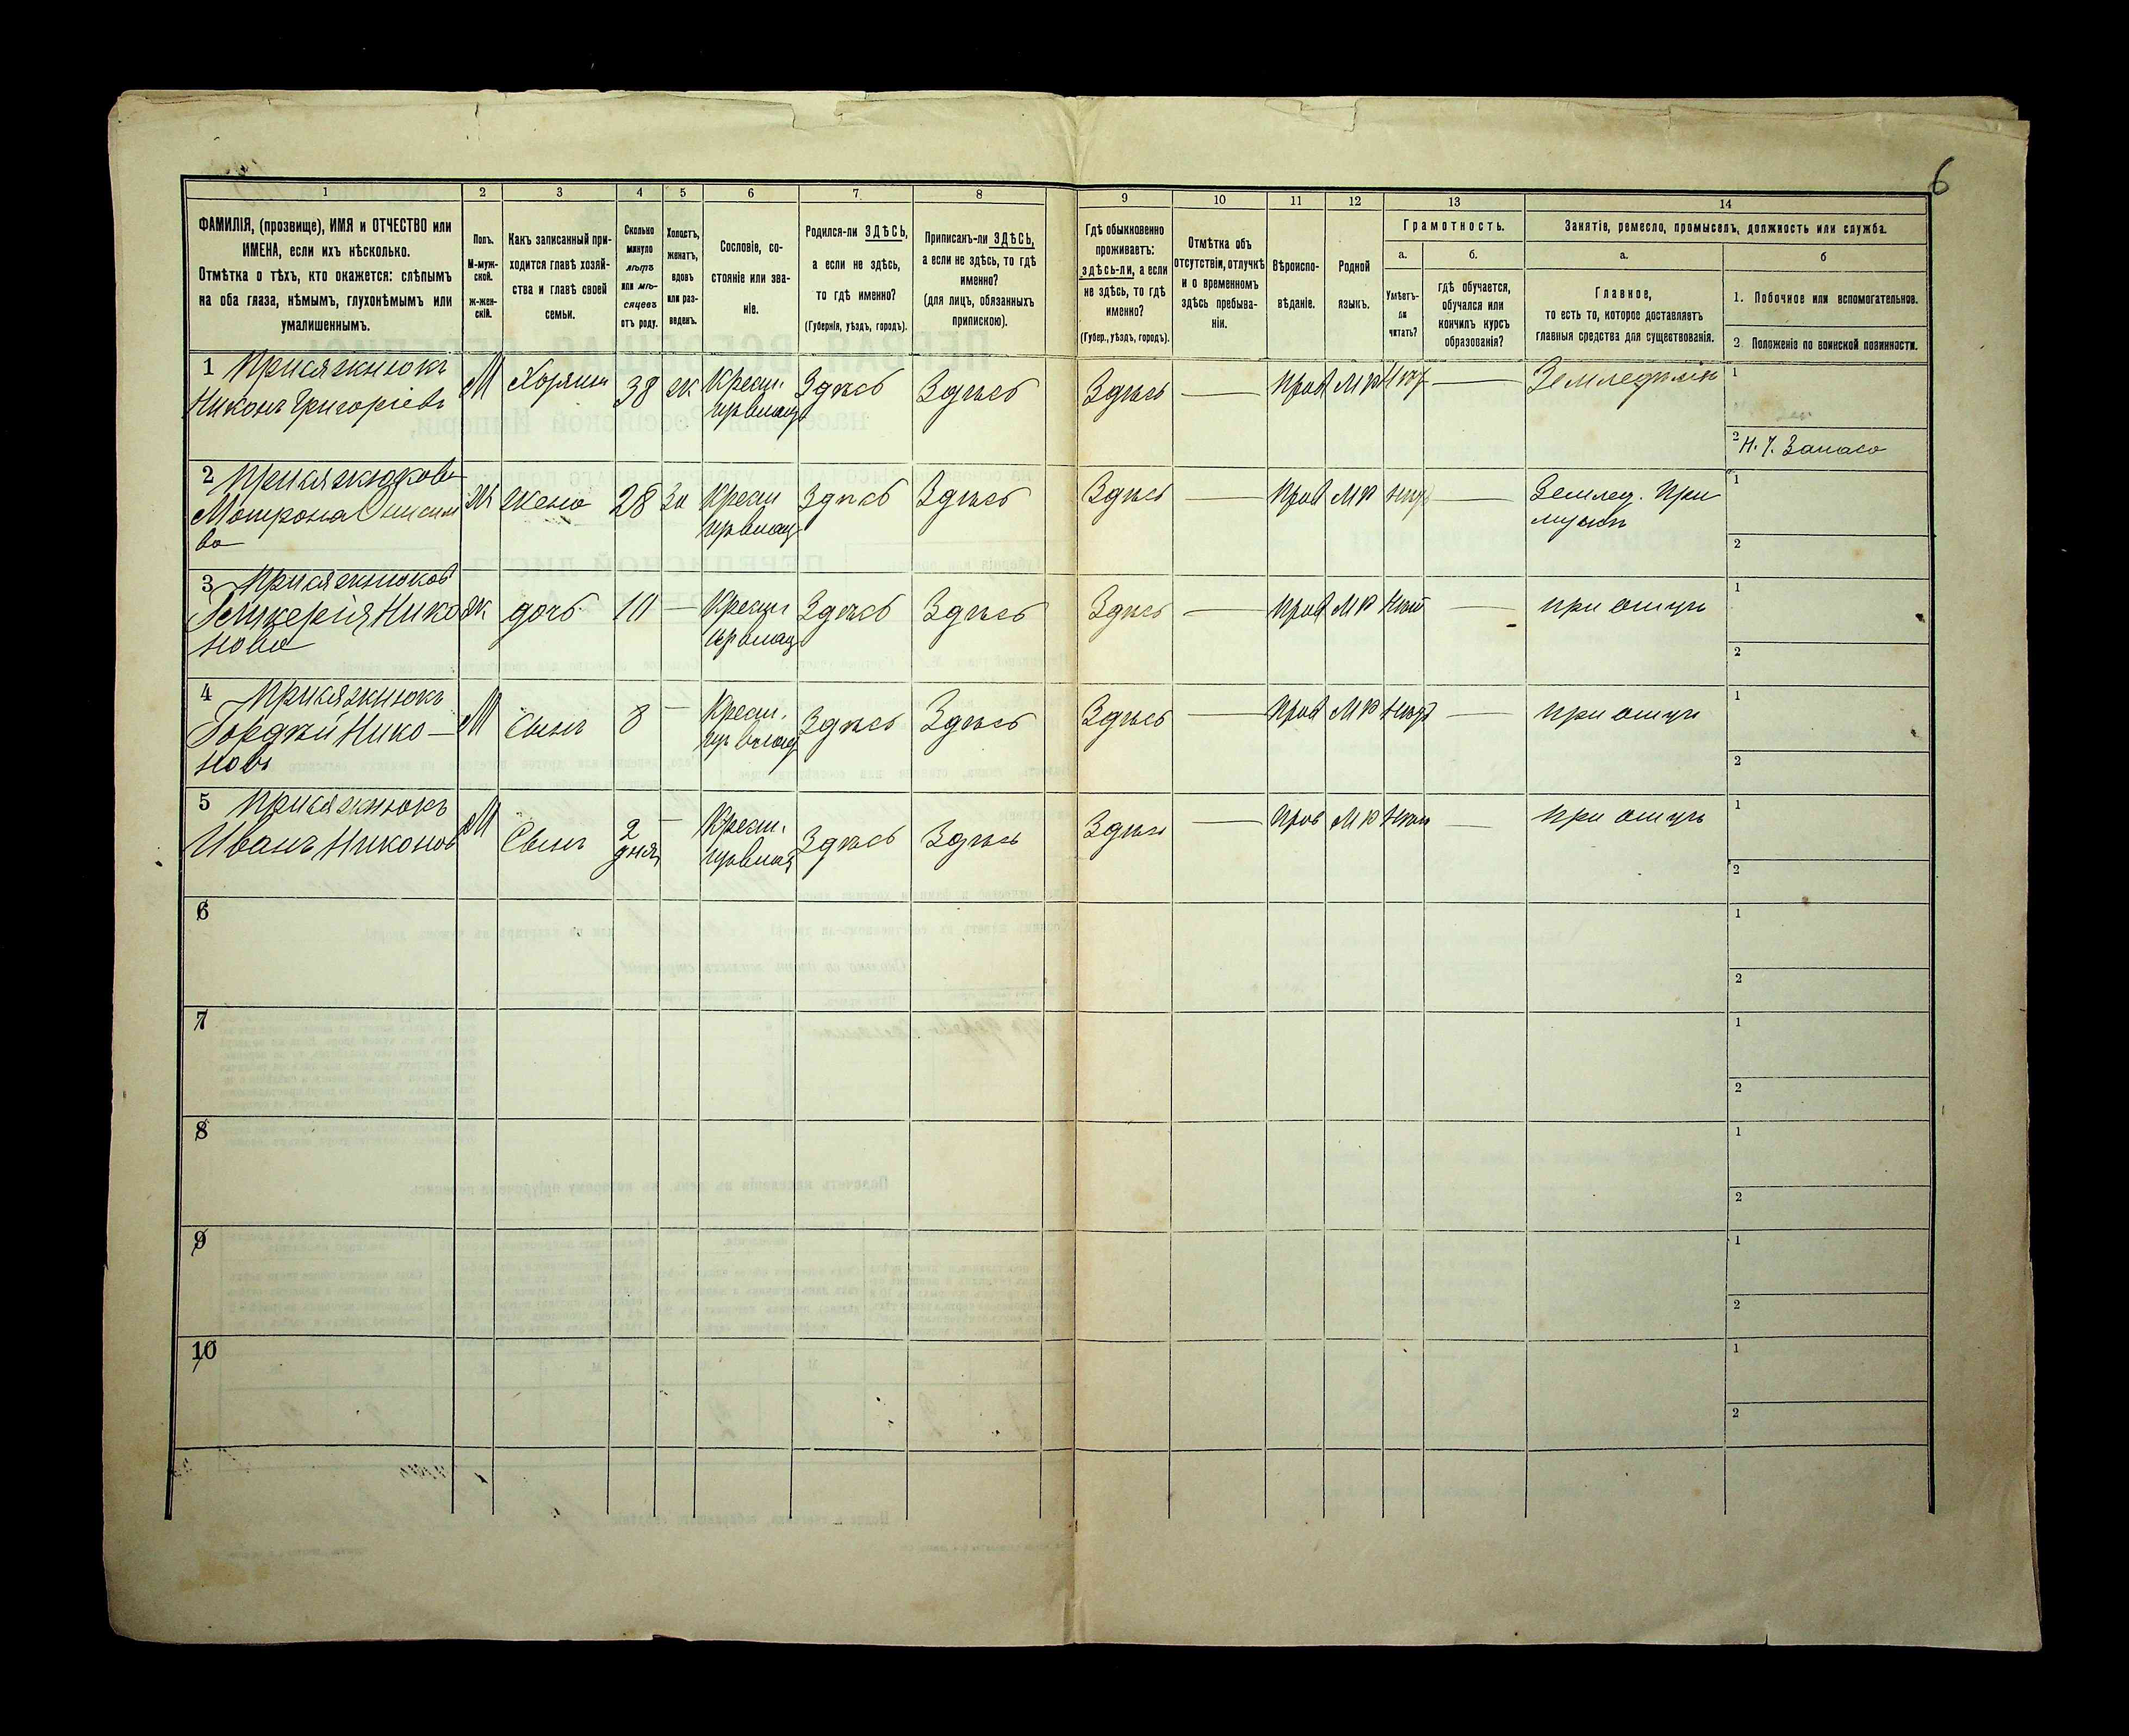 6
1
2
3
4
5
6
7
8
9
10
11
12
13
14
ФАМИЛІЯ, (прозвище), ИМЯ и ОТЧЕСТВО или
ИМЕНА, если ихъ нѣсколько.
Отмѣтка о тѣхъ, кто окажется: слѣпымъ
на оба глаза, нѣмымъ, глухонѣмымъ или
умалишеннымъ.
Полъ.
М-муж-
ской.
Ж-жен-
скій.
Какъ записанный при-
ходится главѣ хозяй-
ства и главѣ своей
семьи.
Сколько
минуло
лѣтъ
или мѣ-
сяцевъ
отъ роду.
Холостъ,
женатъ,
вдовъ
или раз-
веденъ.
Сословіе, со-
стояніе или зва-
ніе.
Родился-ли ЗДѢСЬ,
а если не здѣсь,
то гдѣ именно?
(Губернія, уѣздъ, городъ).
Приписанъ-ли ЗДѢСЬ,
а если не здѣсь, то гдѣ
именно?
(для лицъ, обязанныхъ
припискою).
Гдѣ обыкновенно
проживаетъ:
здѣсь-ли, а если
не здѣсь, то гдѣ
именно?
(Губер., уѣздъ, городъ).
Отмѣтка объ
отсутствіи, отлучкѣ
и о временномъ
здѣсь пребыва-
ніи.
Вѣроиспо-
вѣданіе.
Родной
языкъ.
Грамотность.
а.
Умѣетъ-
ли
читать?
б.
гдѣ обучается,
обучался или
кончилъ курсъ
образованія?
Занятіе, ремесло, промыселъ, должность или служба.
а.
Главное,
то есть то, которое доставляетъ
главныя средства для существованія.
б
1. Побочное или вспомогательное.
2. Положеніе по воинской повинности.
1 Присяжнюкъ
Никонъ Григоріевъ
М
Хозяинъ
38
ж
Крест.
Здѣсь
Здѣсь
Здѣсь
—
Прав
МР
Нѣтъ
—
Земледѣліе
1
2 Н. Ч. Запаса
2 Присяжнюкова
Мотрона Онисим
ва
Ж
Жена
28
За
Крест
Здѣсь
Здѣсь
Здѣсь
—
Прав
МР
Нѣтъ
—
Землед. При
мужѣ
1
2
3 Присяжнюкова
Гликерія Нико
нова
Ж
дочь
10
—
Крест
Здѣсь
Здѣсь
Здѣсь
—
Прав
МР
Нѣтъ
—
при отцѣ
1
2
4 Присяжнюкъ
Гордѣй Нико-
новъ
М
Сынъ
8
—
Крест.
Здѣсь
Здѣсь
Здѣсь
—
Прав
МР
Нѣтъ
—
при отцѣ
1
2
5 Присяжнюкъ
Иванъ Никоновъ
М
Сынъ
2
дня
—
Крест.
Здѣсь
Здѣсь
Здѣсь
—
Прав
МР
Нѣтъ
—
при отцѣ
1
2
6
1
2
7
1
2
8
1
2
9
1
2
10
1
2